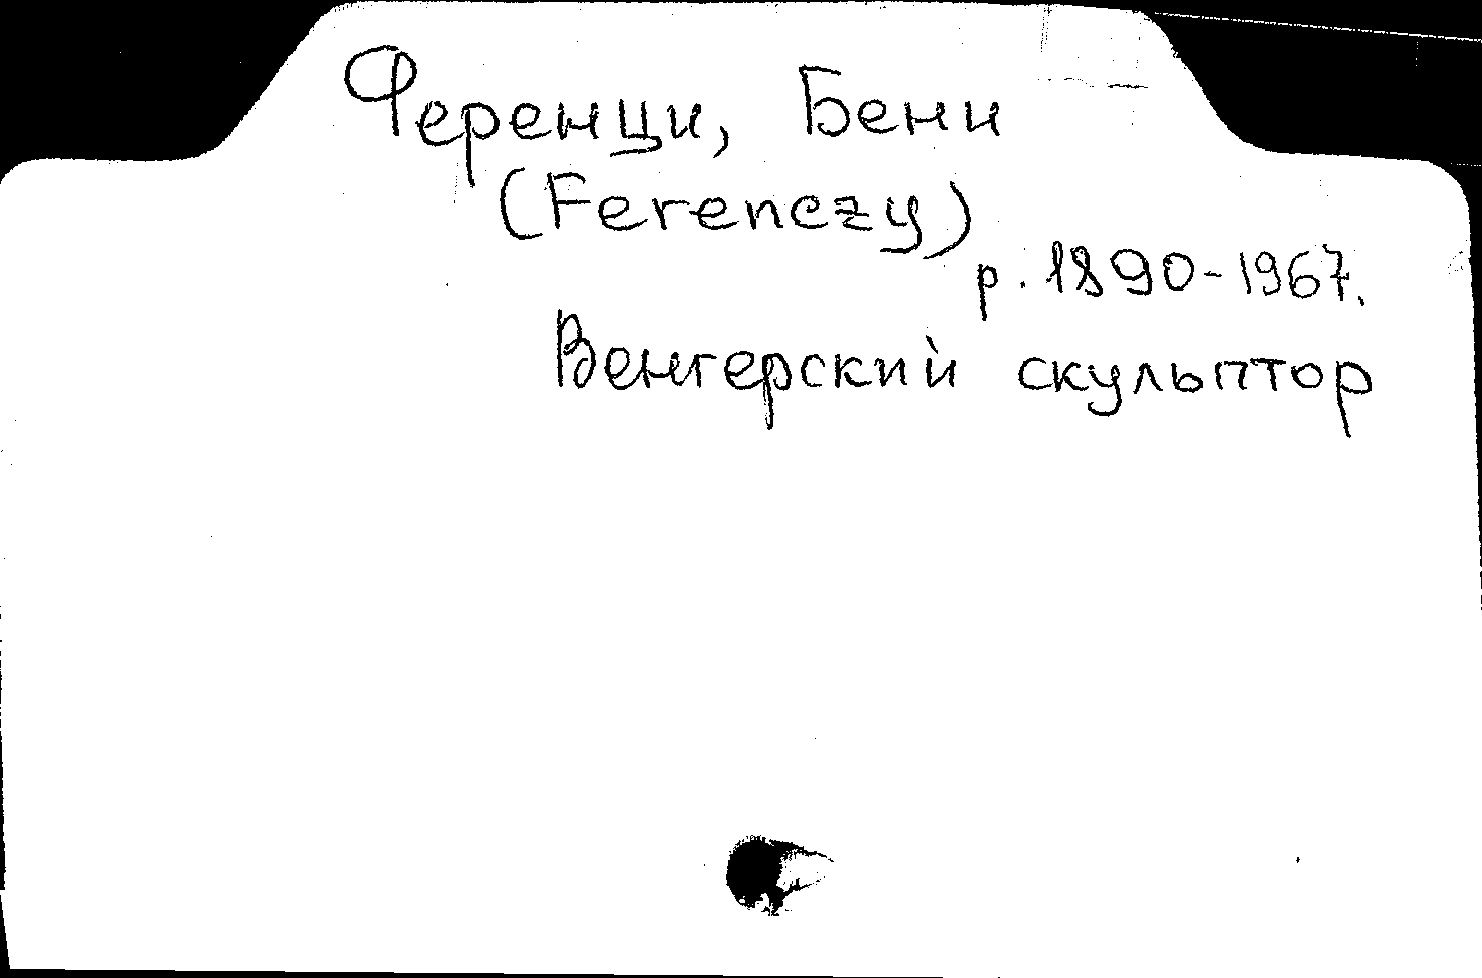 Ференци, Бени
(Ferenczy)
р. 1890-1967.
Венгерский скульптор